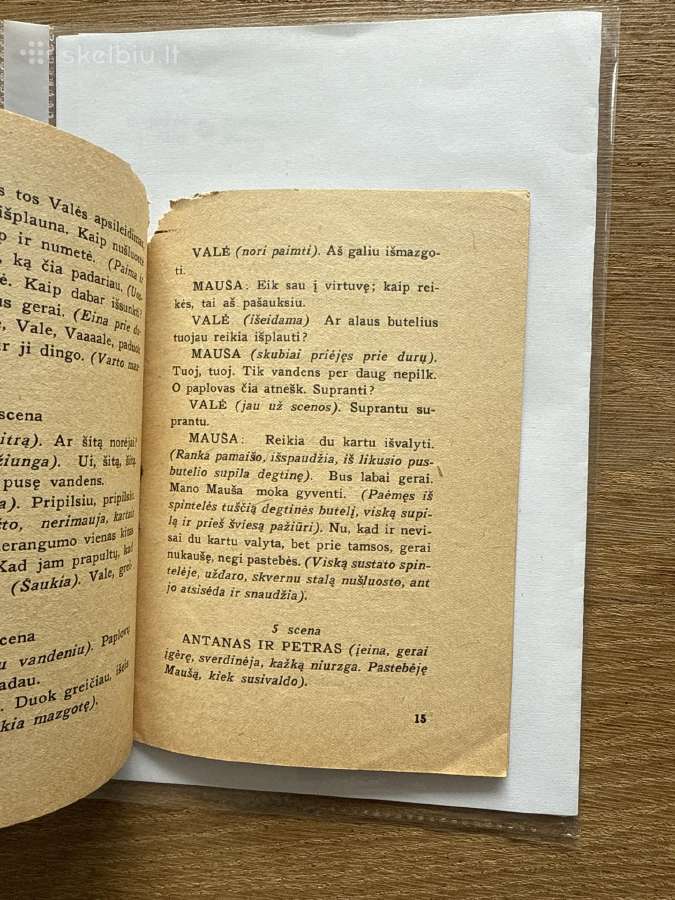 skelbiu.lt
s tos Valės apsileidimas
išplauna. Kaip nušluoste
p ir numetė. (Paima ir
, ką čia padariau,
ė. Kaip dabar išsunkti?
us gerai. (Eina prie
, Vale, Vaaaale, paduok
ir ji dingo. (Varto
scena
itrą). Ar šitą norėjai?
žiunga). Ui, šitą, šitą,
pusę vandens.
a). Pripilsiu, pripilsiu.
što, nerimauja, kartais
nerangumo vienas kitas
Kad jam prapultų, kad
(Šaukia). Vale, greb
cena
u vandeniu). Paplovų
adau.
. Duok greičiau, išeis
kia mazgotę).
VALĖ (nori paimti). Aš galiu išmazgo-
ti.
MAUŠA: Eik sau į virtuvę; kaip rei-
kės, tai aš pašauksiu.
VALĖ (išeidama) Ar alaus butelius
tuojau reikia išplauti?
MAUŠA (skubiai priėjęs prie durų).
Tuoj, tuoj. Tik vandens per daug nepilk.
O paplovas čia atnešk. Supranti?
VALĖ (jau už scenos). Suprantu su-
prantu.
MAUŠA: Reikia du kartu išvalyti.
(Ranka pamaišo, išspaudžia, iš likusio pus-
butelio supila degtinę). Bus labai gerai.
Mano Mauša moka gyventi. (Paėmęs iš
spintelės tuščią degtinės butelį, viską supi-
lą ir prieš šviesą pažiūri). Nu, kad ir nevi-
sai du kartu valyta, bet prie tamsos, gerai
nukaušę, negi pastebės. (Viską sustato spin-
telėje, uždaro, skvernu stalą nušluosto, ant
jo atsisėda ir snaudžia).
5 scena
ANTANAS IR PETRAS (įeina, gerai
įgėrę, sverdinėja, kažką niurzga. Pastebėję
Maušą, kiek susivaldo).
15